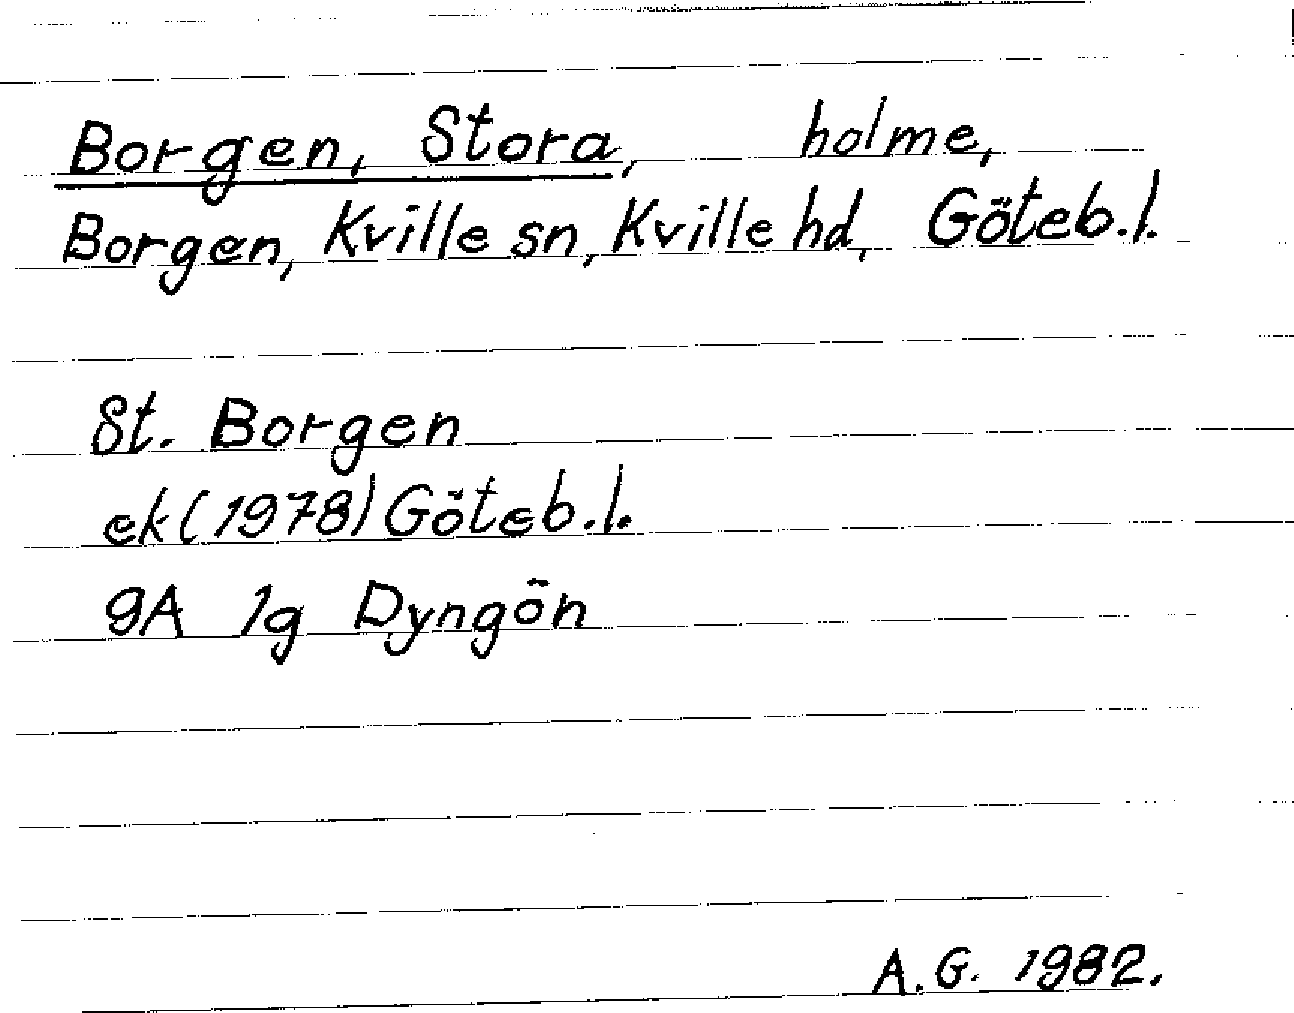 Borgen, Stora, holme,
Borgen, Kville sn, Kville hd, Göteb.l.
St. Borgen
ek (1978) Göteb.l.
9A 1g Dyngön
A.G. 1982.